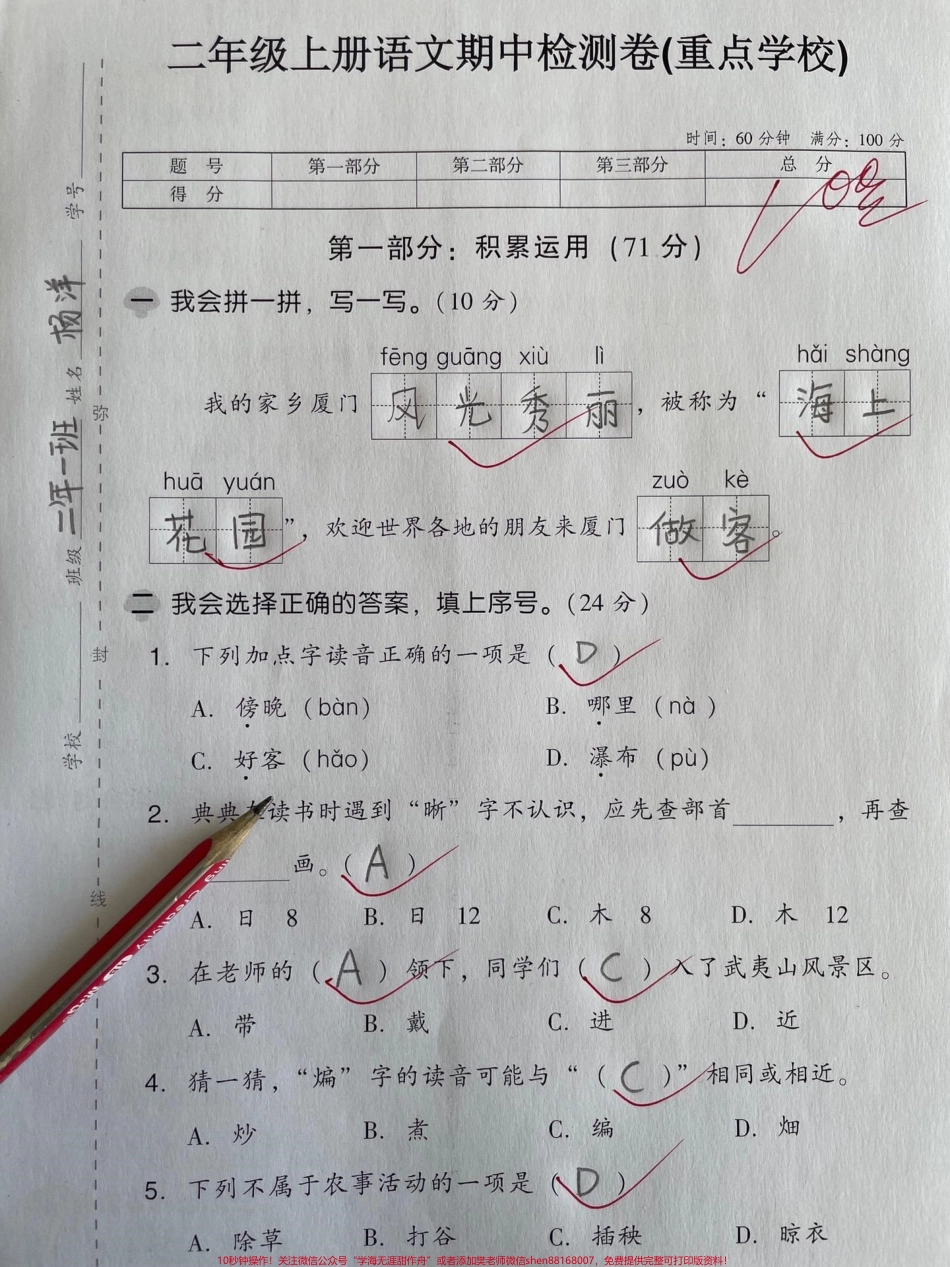 二年级上册语文期中检测卷(重点学校)
时间：60 分钟 满分：100 分
题 号 第一部分 第二部分 第三部分 总 分
得 分 100
第一部分：积累运用（71 分）
一 我会拼一拼，写一写。（10 分）
fēng guāng xiù lì hǎi shàng
我的家乡厦门 风光秀丽 ，被称为“ 海上
huā yuán zuò kè
花园 ”，欢迎世界各地的朋友来厦门 做客 。
二 我会选择正确的答案，填上序号。（24 分）
1. 下列加点字读音正确的一项是（ D ）
A. 傍晚（bàn） B. 哪里（nà ）
C. 好客（hǎo） D. 瀑布（pù）
2. 典典 读书时遇到“晰”字不认识，应先查部首________，再查
______画。（ A ）
A. 日 8 B. 日 12 C. 木 8 D. 木 12
3. 在老师的（ A ）领下，同学们（ C ）入了武夷山风景区。
A. 带 B. 戴 C. 进 D. 近
4. 猜一猜，“煸”字的读音可能与“（ C ）”相同或相近。
A. 炒 B. 煮 C. 编 D. 畑
5. 下列不属于农事活动的一项是（ D ）
A. 除草 B. 打谷 C. 插秧 D. 晾衣
学校 班级 二年一班 姓名 杨洋 学号
弥 封 线
10秒钟操作！关注微信公众号“学海无涯甜作舟”或者添加樊老师微信shen88168007，免费提供完整可打印版资料！